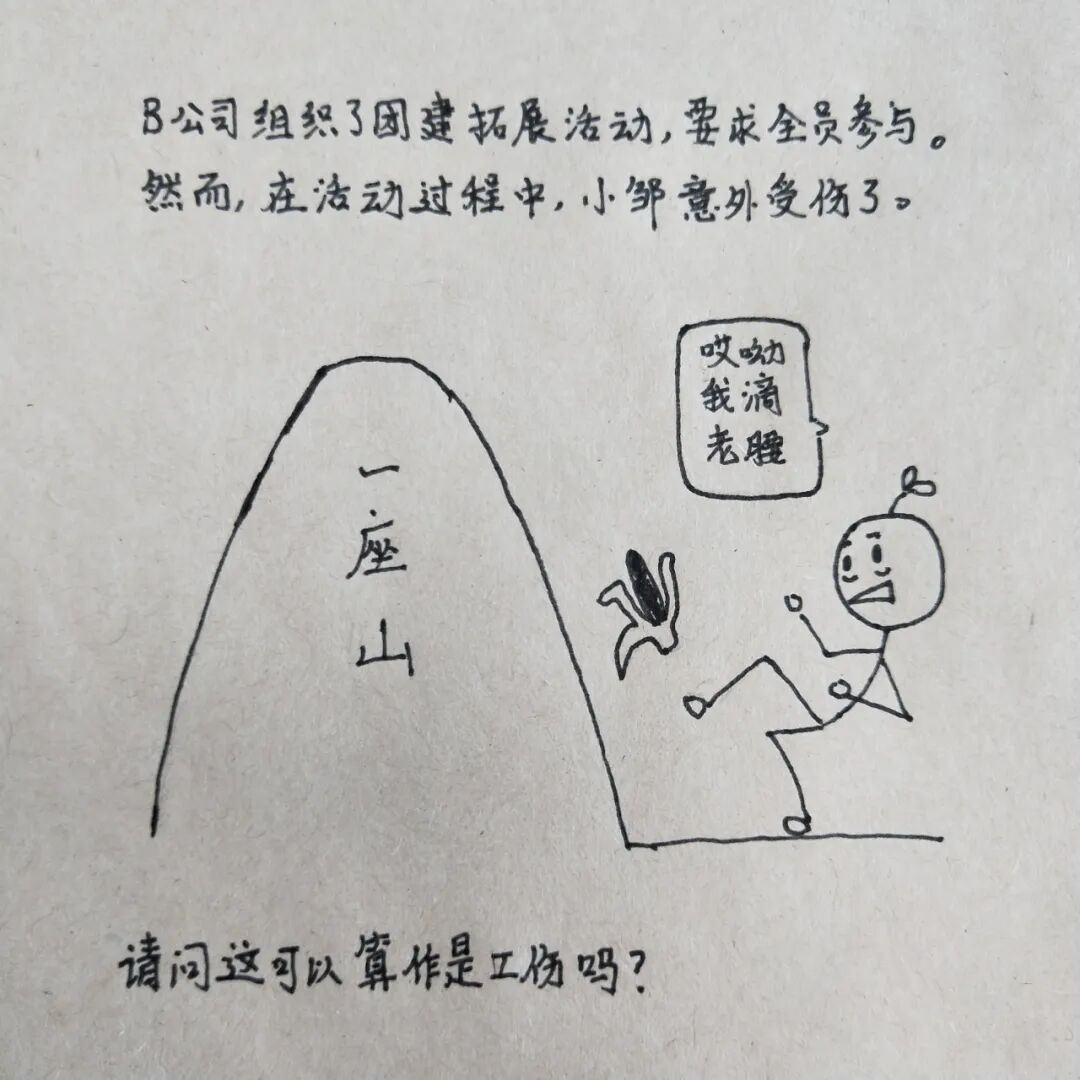 B公司组织了团建拓展活动,要求全员参与。
然而,在活动过程中,小邹意外受伤了。
哎呦
我滴
老腰
一座山
请问这可以算作是工伤吗?